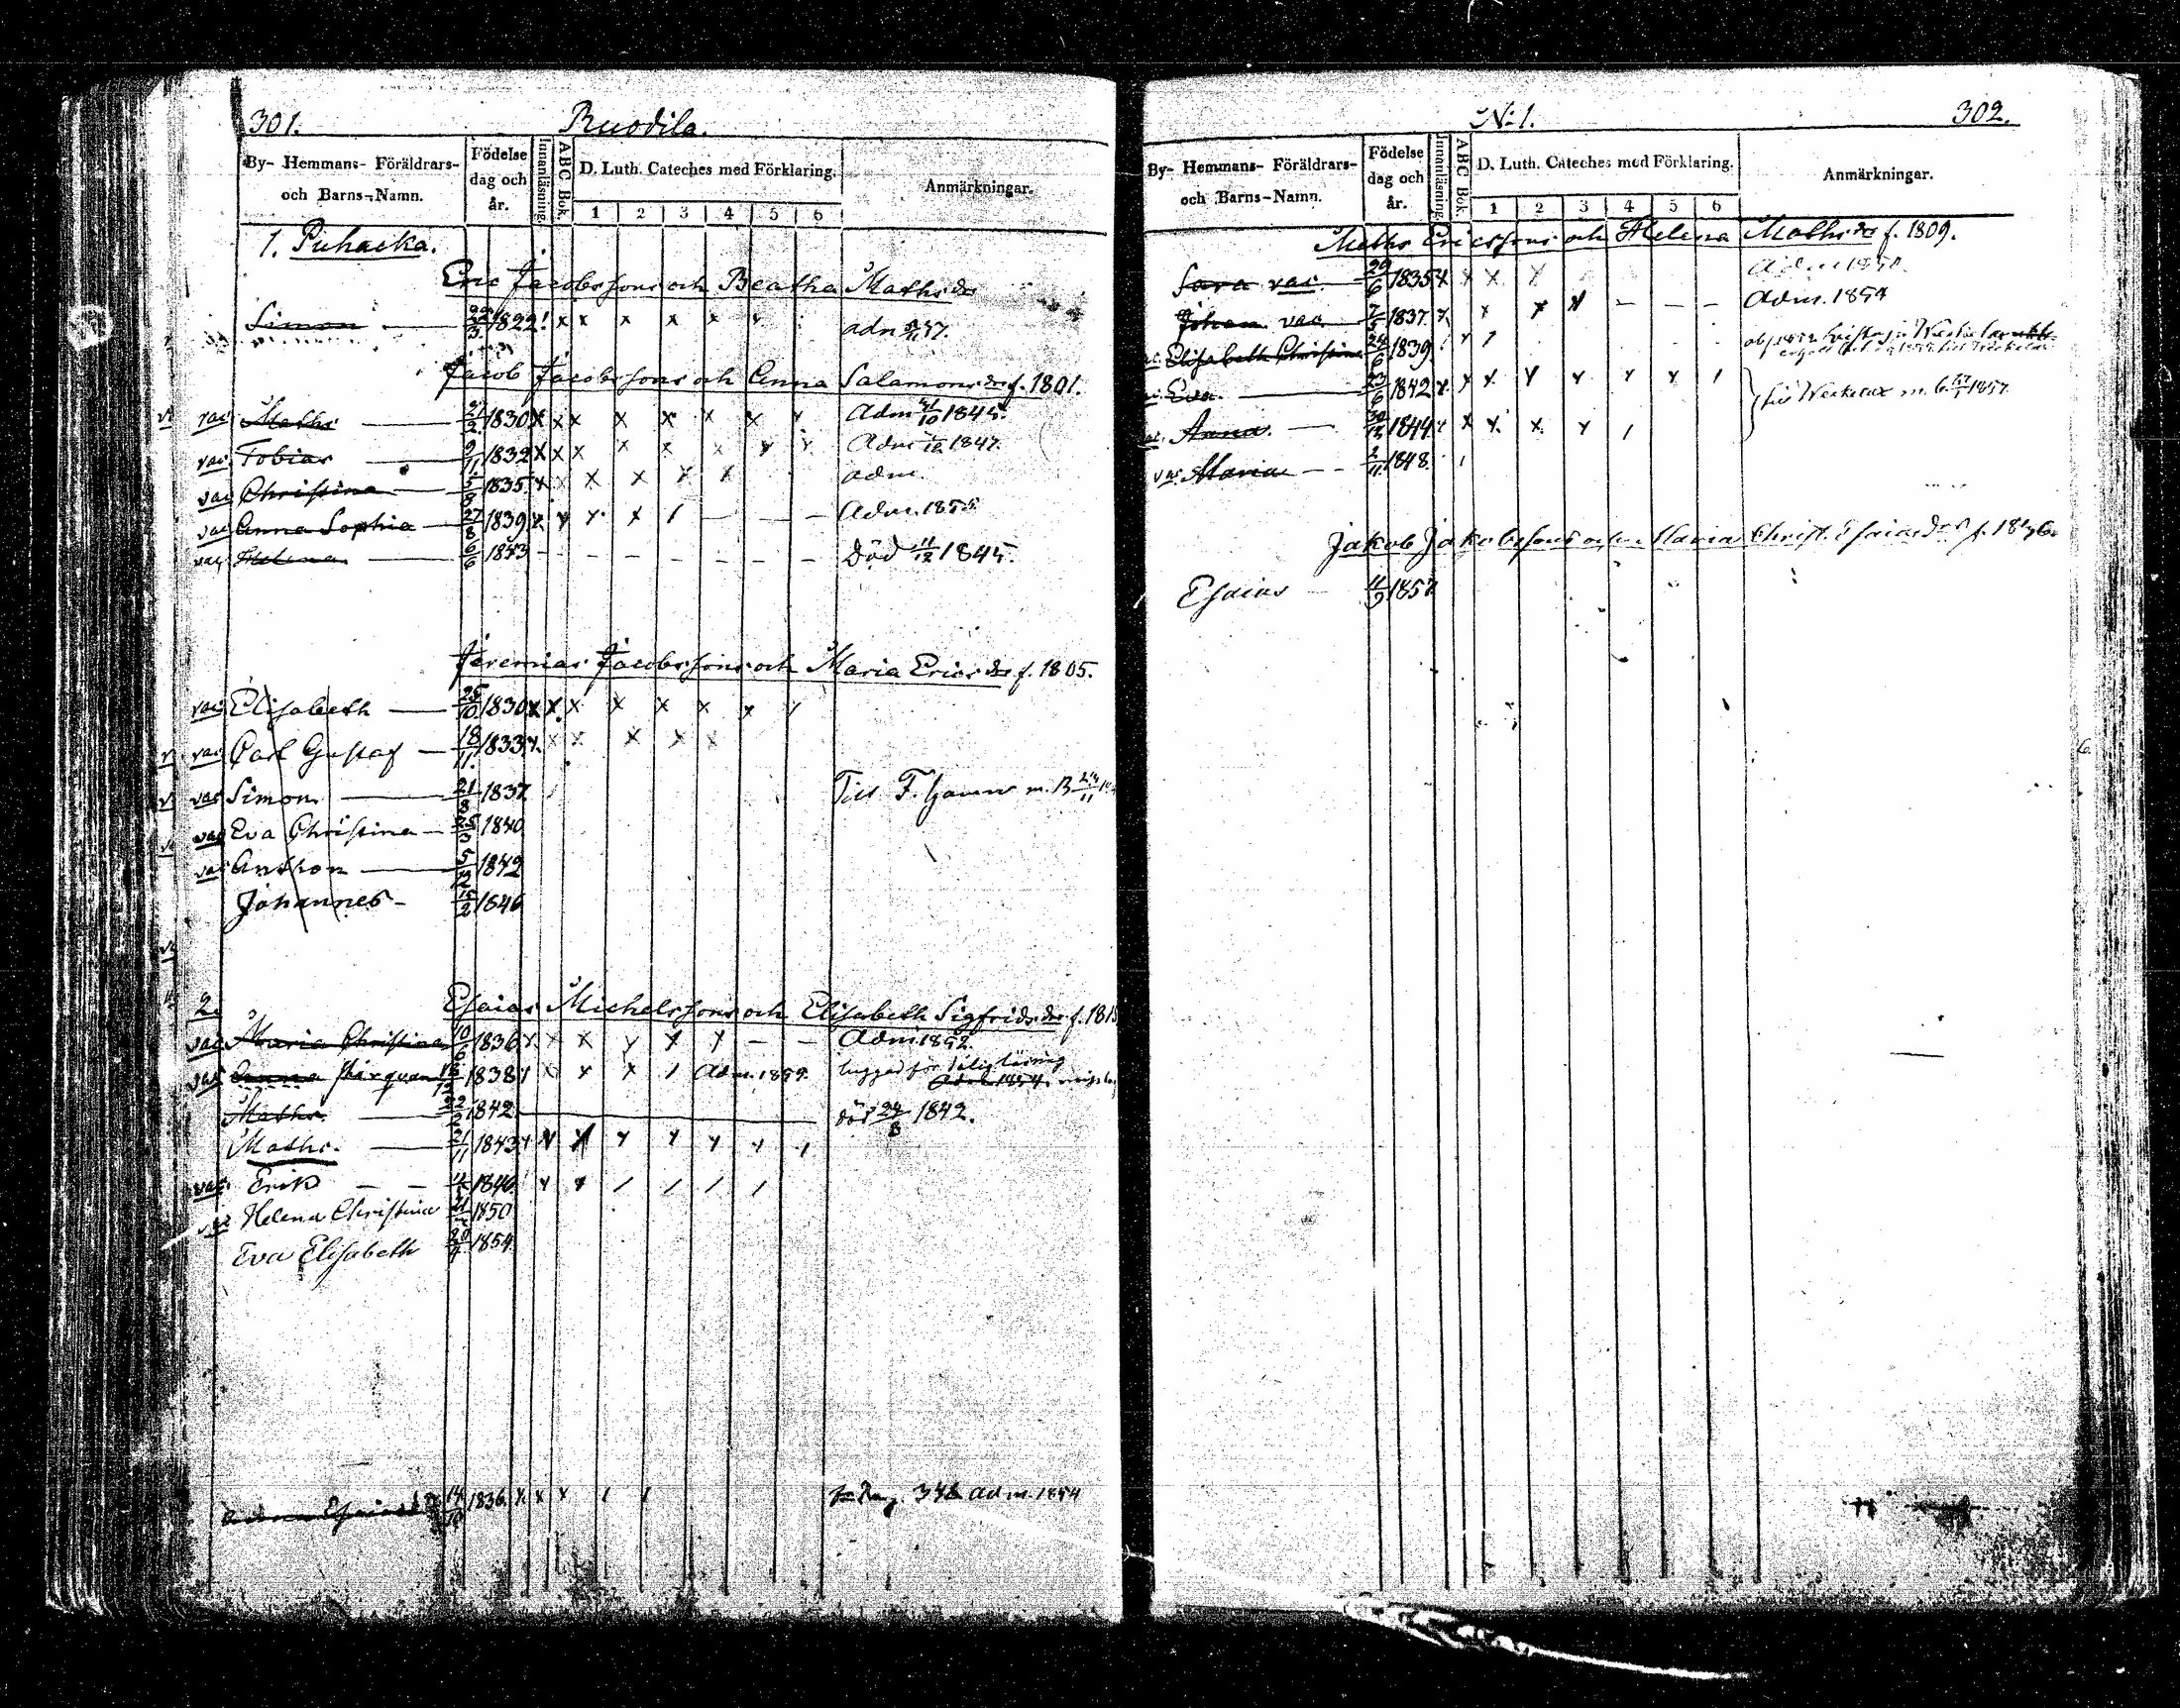 301. Ruodila.
By- Hemmans- Föräldrars- och Barns-Namn.
Födelse dag och år.
Innanläsning.
ABC Bok.
D. Luth. Cateches med Förklaring.
1 2 3 4 5 6
Anmärkningar.
1. Puhacka.
Eric Jacobssons och Beatha Mathsdr
Simon 22/3 1822 ! x x x x x
Jacob Jacobssons och Anna Salamonsdr f. 1801.
vac Maths 21/2 1830 x x x x x x x Adm 1845.
vac Tobias 9/11 1832 x x x x x x x x Adm 1847.
vac Christina 1835 x x x x x x adm.
vac Anna Sophia 27/8 1839 x x x x / — — — Adm. 1855
vac Helena 6/6 1843 – – – – – – – Död 11/12 1845.
Jeremias Jacobssons och Maria Ericsdr f. 1805.
vac Elisabeth 25/10 1830 x x x x x x x /
vac Carl Gustaf 18/11 1833 x x x x x x
vac Simon 21/8 1837 / Till F. m. B
vac Eva Christina 1840
vac Anthon 5/12 1842
Johannes 15/2 1846
2. Esaias Michelssons och Elisabeth Sigfridsdr f. 181
vac Maria Christina 10/6 1836 x x x y x y — — Adm 1852.
vac Anna 1838 / x x x / Adm. 1859. för dålig läsning Adm 1854
Maths 1842 död 24/8 1842.
Maths. 21/11 1843 x x x y y y y /
vac Erik – – 1846 / x x / / / /
vac Helena Christina 1850
Eva Elisabeth 20/4 1854
Anna Esaiasdr 14/10 1836 x x x / / Pag. adm. 1854
No 1. 302.
By- Hemmans- Föräldrars- och Barns-Namn.
Födelse dag och år.
Innanläsning.
ABC Bok.
D. Luth. Cateches med Förklaring.
1 2 3 4 5 6
Anmärkningar.
Maths Ericssons och Helena Mathsdr f. 1809.
Sara vac. 29/6 1835 x x x y
Johan vac. 7/5 1837 x x x x – – – Adm. 1854
Elisabeth Christina 24/6 1839 ! y 1
Eva 23/6 1842 x x x y y y y 1 m. 1857.
Anna. 1844 y x x x y /
vac. Maria – – 2/11 1848 /
Jakob Jakobssons och Maria Christ. Esaiasdr f. 1836.
Esaias 11/9 1857